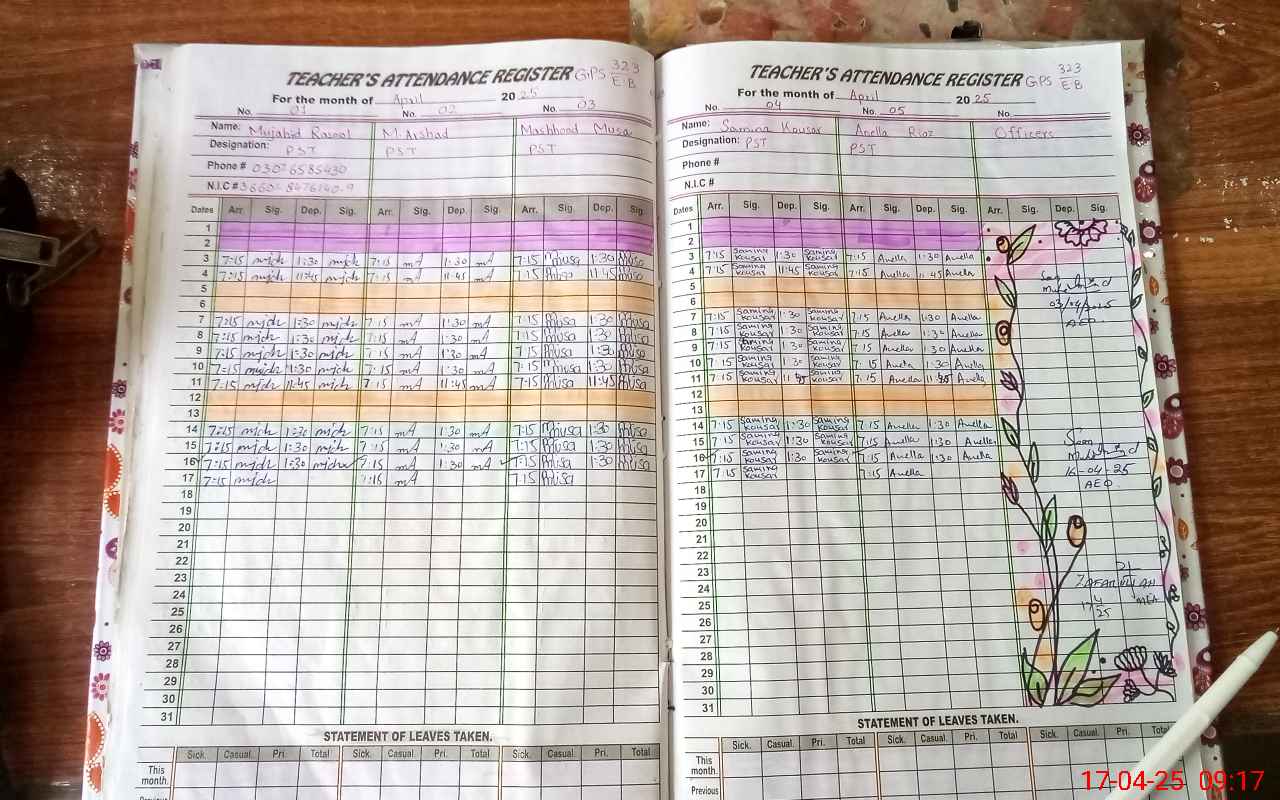 TEACHER'S ATTENDANCE REGISTER GPS 323/EB
For the month of April 2025
No. 01 No. 02 No. 03
Name: Mujahid Rasool M. Arshad Mashhood Musa
Designation: PST PST PST
Phone #
N.I.C #
Dates Arr. Sig. Dep. Sig. Arr. Sig. Dep. Sig. Arr. Sig. Dep. Sig.
1
2
3 7:15 mjdr 1:30 mjdr 7:15 mA 1:30 mA 7:15 Musa 1:30 Musa
4 7:15 mjdr 11:45 mjdr 7:15 mA 11:45 mA 7:15 Musa 11:45 Musa
5
6
7 7:15 mjdr 1:30 mjdr 7:15 mA 1:30 mA 7:15 Musa 1:30 Musa
8 7:15 mjdr 1:30 mjdr 7:15 mA 1:30 mA 7:15 Musa 1:30 Musa
9 7:15 mjdr 1:30 mjdr 7:15 mA 1:30 mA 7:15 Musa 1:30 Musa
10 7:15 mjdr 1:30 mjdr 7:15 mA 1:30 mA 7:15 Musa 1:30 Musa
11 7:15 mjdr 11:45 mjdr 7:15 mA 11:45 mA 7:15 Musa 11:45 Musa
12
13
14 7:15 mjdr 1:30 mjdr 7:15 mA 1:30 mA 7:15 Musa 1:30 Musa
15 7:15 mjdr 1:30 mjdr 7:15 mA 1:30 mA 7:15 Musa 1:30 Musa
16 7:15 mjdr 1:30 mjdr 7:15 mA 1:30 mA 7:15 Musa 1:30 Musa
17 7:15 mjdr 7:15 mA 7:15 Musa
18
19
20
21
22
23
24
25
26
27
28
29
30
31
STATEMENT OF LEAVES TAKEN.
Sick. Casual. Pri. Total Sick. Casual. Pri. Total Sick. Casual. Pri. Total
This month.
Previous
TEACHER'S ATTENDANCE REGISTER GPS 323/EB
For the month of April 2025
No. 04 No. 05 No.
Name: Samina Kousar Anella Riaz Officers
Designation: PST PST
Phone #
N.I.C #
Dates Arr. Sig. Dep. Sig. Arr. Sig. Dep. Sig. Arr. Sig. Dep. Sig.
1
2
3 7:15 Samina Kousar 1:30 Samina Kousar 7:15 Anella 1:30 Anella
4 7:15 Samina Kousar 11:45 Samina Kousar 7:15 Anella 11:45 Anella
5
03/04/2025
6
AEO
7 7:15 Samina Kousar 1:30 Samina Kousar 7:15 Anella 1:30 Anella
8 7:15 Samina Kousar 1:30 Samina Kousar 7:15 Anella 1:30 Anella
9 7:15 Samina Kousar 1:30 Samina Kousar 7:15 Anella 1:30 Anella
10 7:15 Samina Kousar 1:30 Samina Kousar 7:15 Anella 1:30 Anella
11 7:15 Samina Kousar 11:45 Samina Kousar 7:15 Anella 11:45 Anella
12
13
14 7:15 Samina Kousar 1:30 Samina Kousar 7:15 Anella 1:30 Anella
15 7:15 Samina Kousar 1:30 Samina Kousar 7:15 Anella 1:30 Anella
16 7:15 Samina Kousar 1:30 Samina Kousar 7:15 Anella 1:30 Anella
17 7:15 Samina Kousar 7:15 Anella
16-04-25
AEO
18
19
20
21
22
23
ZAFARULLAH
24
MEA
25
17/4/25
26
27
28
29
30
31
STATEMENT OF LEAVES TAKEN.
Sick. Casual. Pri. Total Sick. Casual. Pri. Total Sick. Casual. Pri. Total
This month.
Previous
17-04-25 09:17